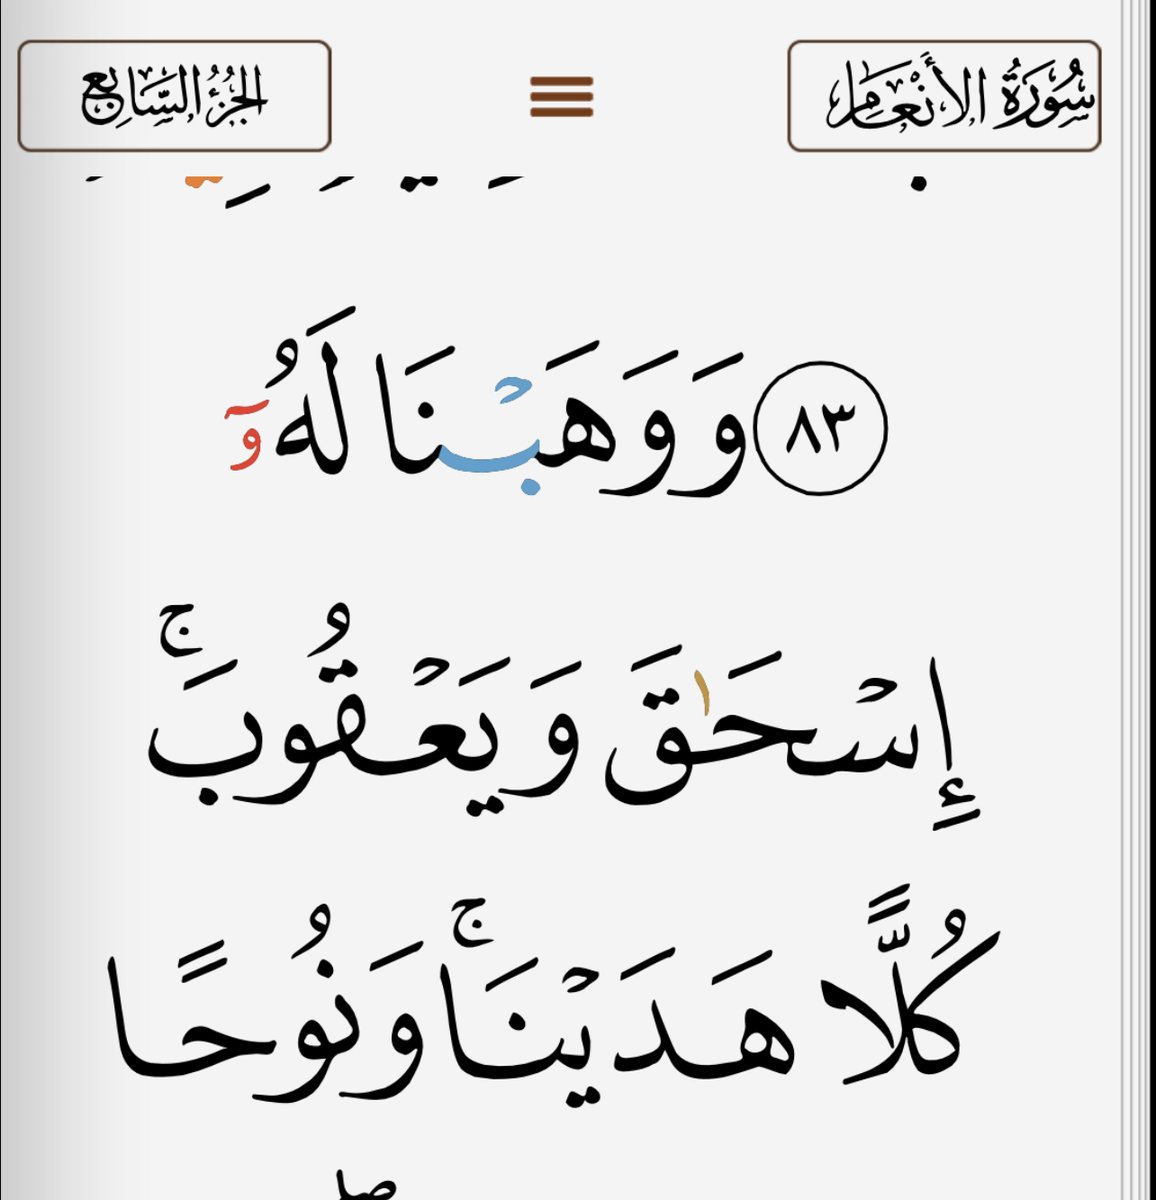 سُورَةُ الأَنْعَامِ
الجُزْءُ السَّابِعُ
٨٣ وَوَهَبۡنَا لَهُۥٓ
إِسۡحَٰقَ وَيَعۡقُوبَۚ
كُلًّا هَدَيۡنَاۚ وَنُوحًا